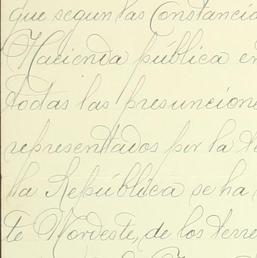 que segun las Constancia
Hacienda pública en
todas las presuncione
representados por la
lla República se ha
te Nordeste, de los terre